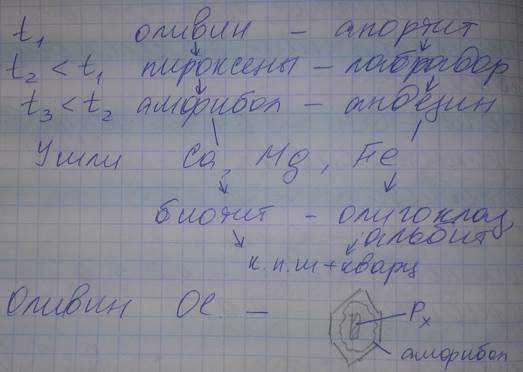 t₁ оливин – анортит
t₂ < t₁ пироксены – лабрадор
t₃ < t₂ амфибол – андезин
Ушли Ca, Mg, Fe
биотит – олигоклаз
альбит
к.п.ш + кварц
Оливин Ol –
Px
амфибол